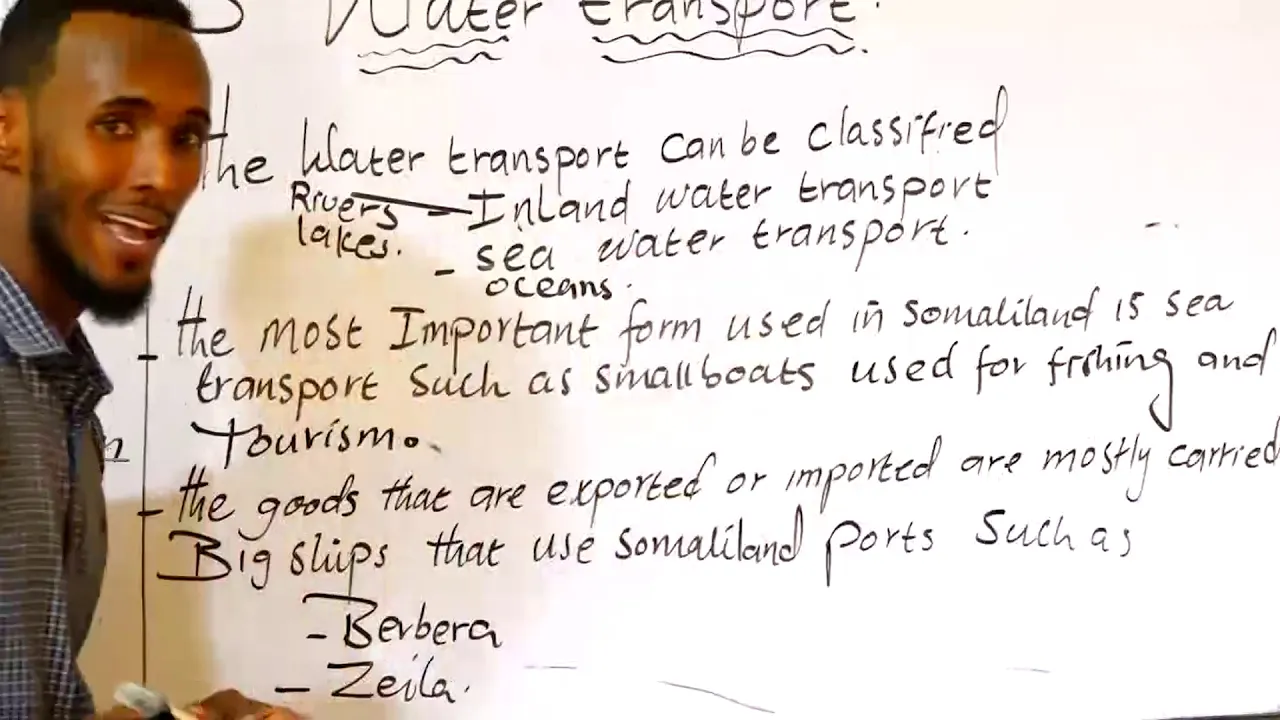 Water transport.
the Water transport can be classified
Rivers - Inland water transport
lakes.
- sea water transport.
oceans.
- the most Important form used in Somaliland is sea
transport Such as small boats used for fishing and
tourism.
- the goods that are exported or imported are mostly carried
Big ships that use Somaliland ports Such as
- Berbera
- Zeila.